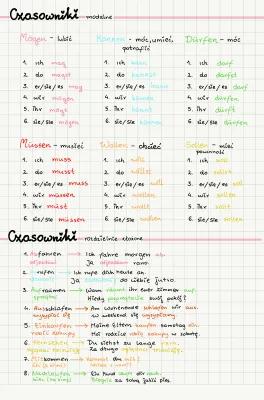 Czasowniki modalne
Mögen - lubić
Können - móc, umieć, potrafić
Dürfen - móc
1. ich mag
2. du magst
3. er/sie/es mag
4. wir mögen
5. ihr mögt
6. sie/Sie mögen
1. ich kann
2. du kannst
3. er/sie/es kann
4. wir können
5. ihr könnt
6. sie/Sie können
1. ich darf
2. du darfst
3. er/sie/es darf
4. wir dürfen
5. ihr dürft
6. sie/Sie dürfen
Müssen - musieć
Wollen - chcieć
Sollen - mieć powinność
1. ich muss
2. du musst
3. er/sie/es muss
4. wir müssen
5. ihr müsst
6. sie/Sie müssen
1. ich will
2. du willst
3. er/sie/es will
4. wir wollen
5. ihr wollt
6. sie/Sie wollen
1. ich soll
2. du sollst
3. er/sie/es soll
4. wir sollen
5. ihr sollt
6. sie/Sie sollen
Czasowniki rozdzielnie złożone
1. Abfahren → Ich fahre morgen ab.
Ja rano.
2. rufen → Ich rufe dich heute an.
do ciebie jutro.
3. Aufräumen → Wann räumt ihr euer Zimmer auf.
Kiedy swój pokój?
4. Ausschlafen → Am Wochenende schlafen wir aus
wyspać się w weekend się
5. Einkaufen → Meine Eltern kaufen samstag ein
robić zakupy Moi rodzice robią zakupy w sobotę.
6. Fernsehen → Du siehst zu lange fern.
Za długo
7. Mitkommen → Kommst du mit?
8. → Ein Hund läuft dir nach.
Biegnie za tobą jakiś pies.